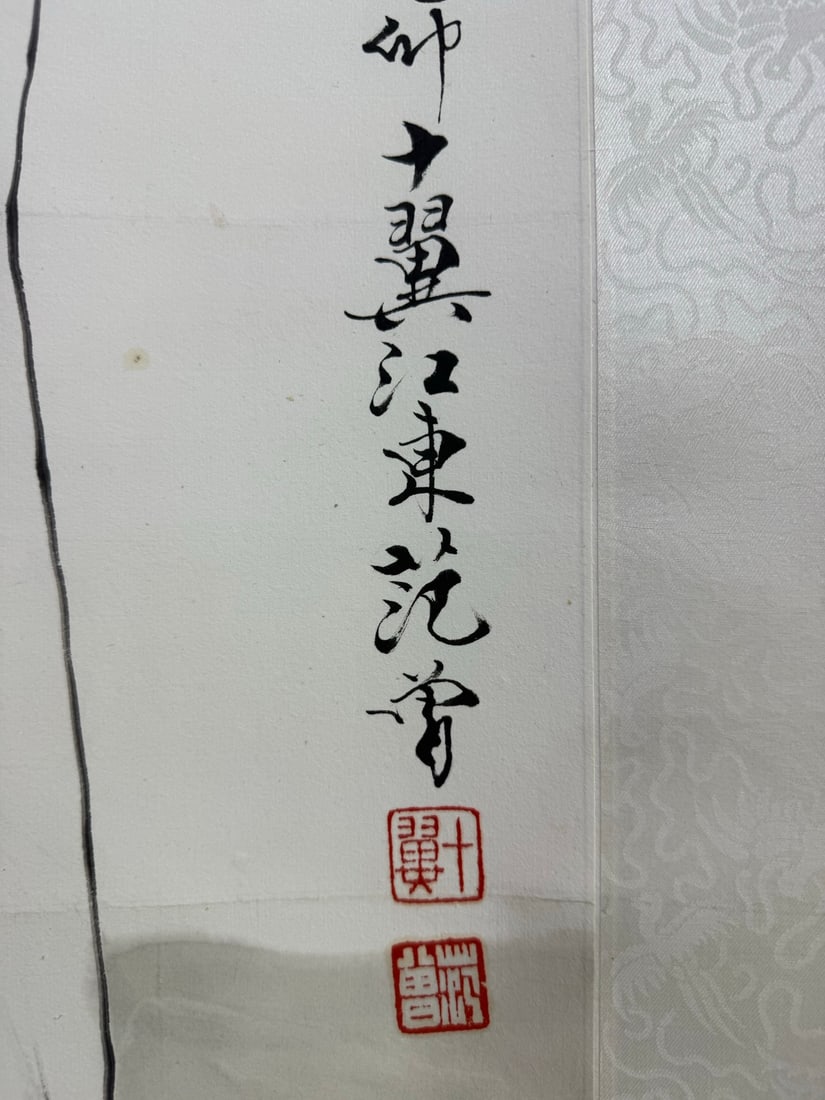 卯十翼江東范曾
十翼
范曾